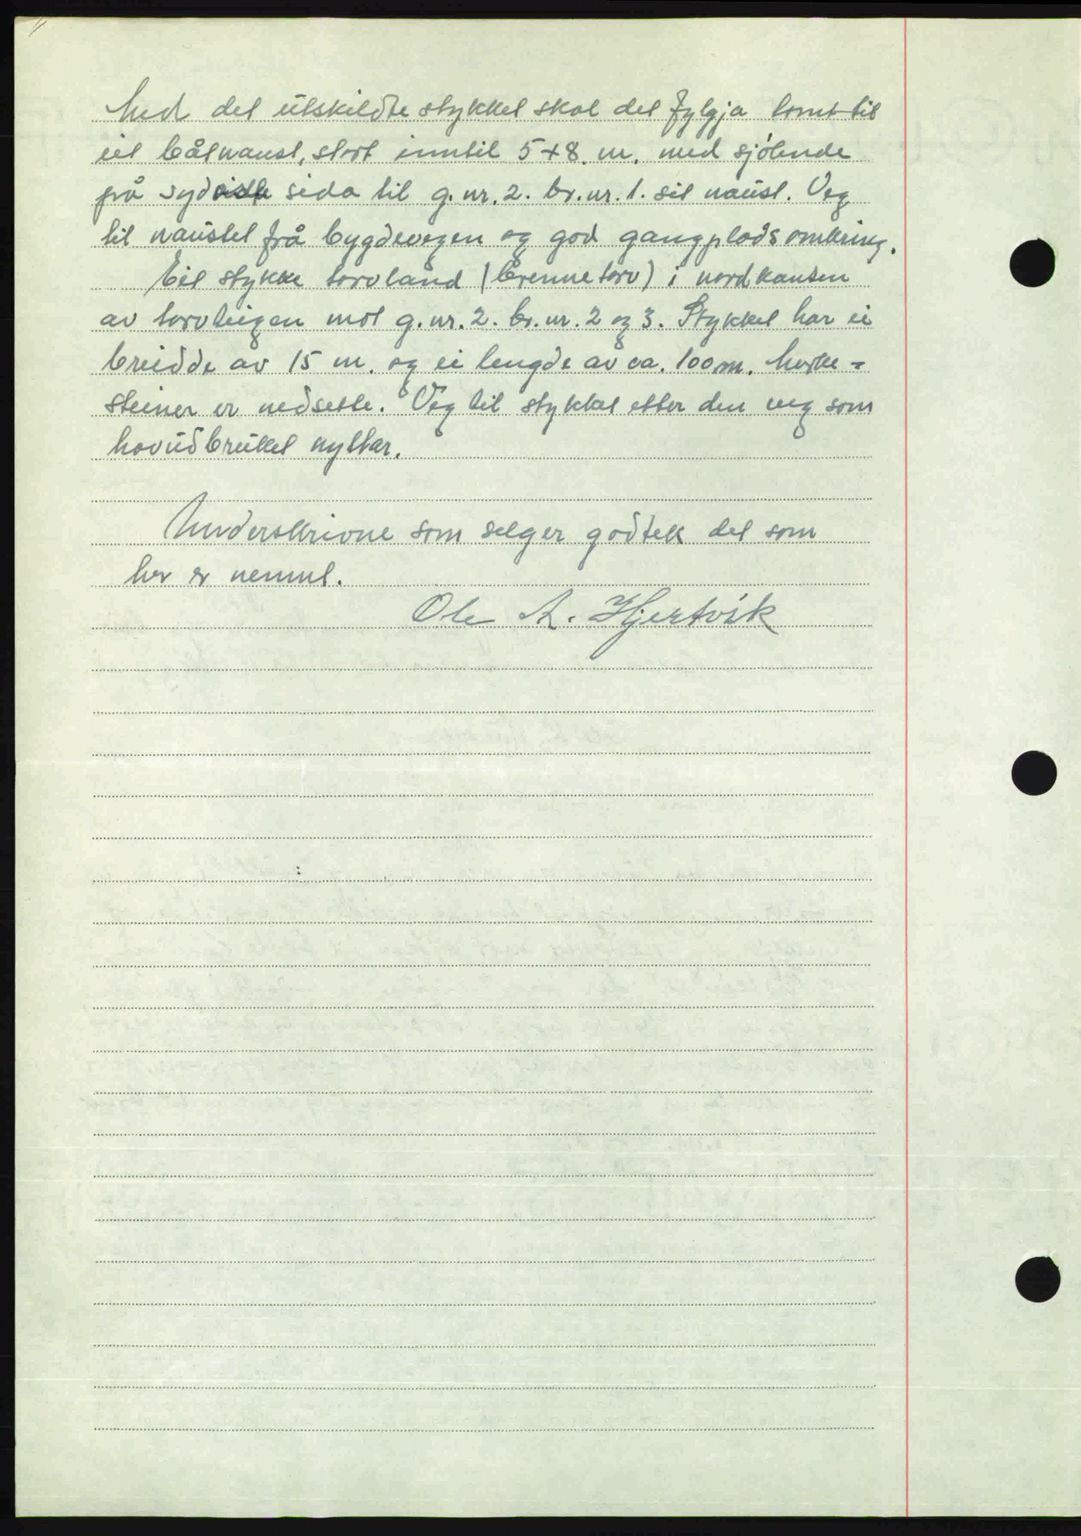 Med det utskildte stykket skal det fylgja tomt til
eit båtnaust, stort inntil 5 + 8. m. med sjölende
på syd sida til g. nr. 2. br. nr. 1. sit naust. Veg
til naustet frå bygdevegen og god gangplads omkring.
Eit stykke torvland (brennetorv) i nordkanten
av torvteigen mot g. nr. 2. br. nr. 2 og 3. Stykket har ei
breidde av 15 m. og ei lengde av ca. 100 m. Merke-
steiner er nedsette. Veg til stykket etter den veg som
hovudbruket nyttar.
Underskrivne som selger godtek det som
her er nemnt.
Ole A. Hjertvik